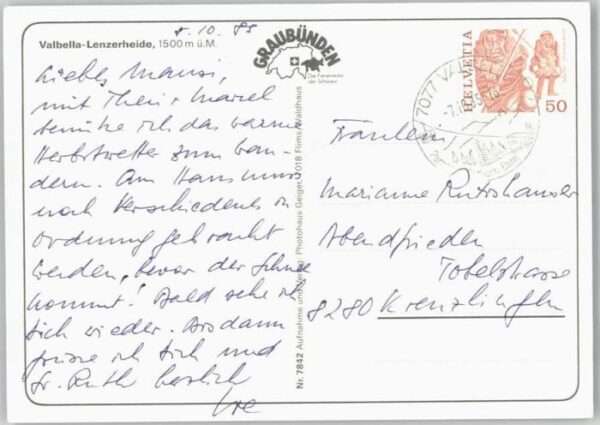 8.10.85
Valbella-Lenzerheide, 1500 m ü.M.
GRAUBÜNDEN
Die Ferienecke
der Schweiz
HELVETIA
50
7077 VALBELLA
Liebes Mausi,
mit Theni + Marcel
benütze ich das warme
Herbstwetter zum Wan-
dern. Am Haus muss
noch Verschiedenes in
Ordnung gebracht
werden, bevor der Schnee
kommt! Bald sehe ich
Dich wieder. Bis dann
grüsse ich Dich und
Sr. Ruth herzlich
Nr. 7842 Aufnahme und Verlag: Photohaus Geiger, 7018 Flims-Waldhaus
Fräulein
Marianne Rutishauser
Abendfrieden
Tobelstrasse
8280 Kreuzlingen